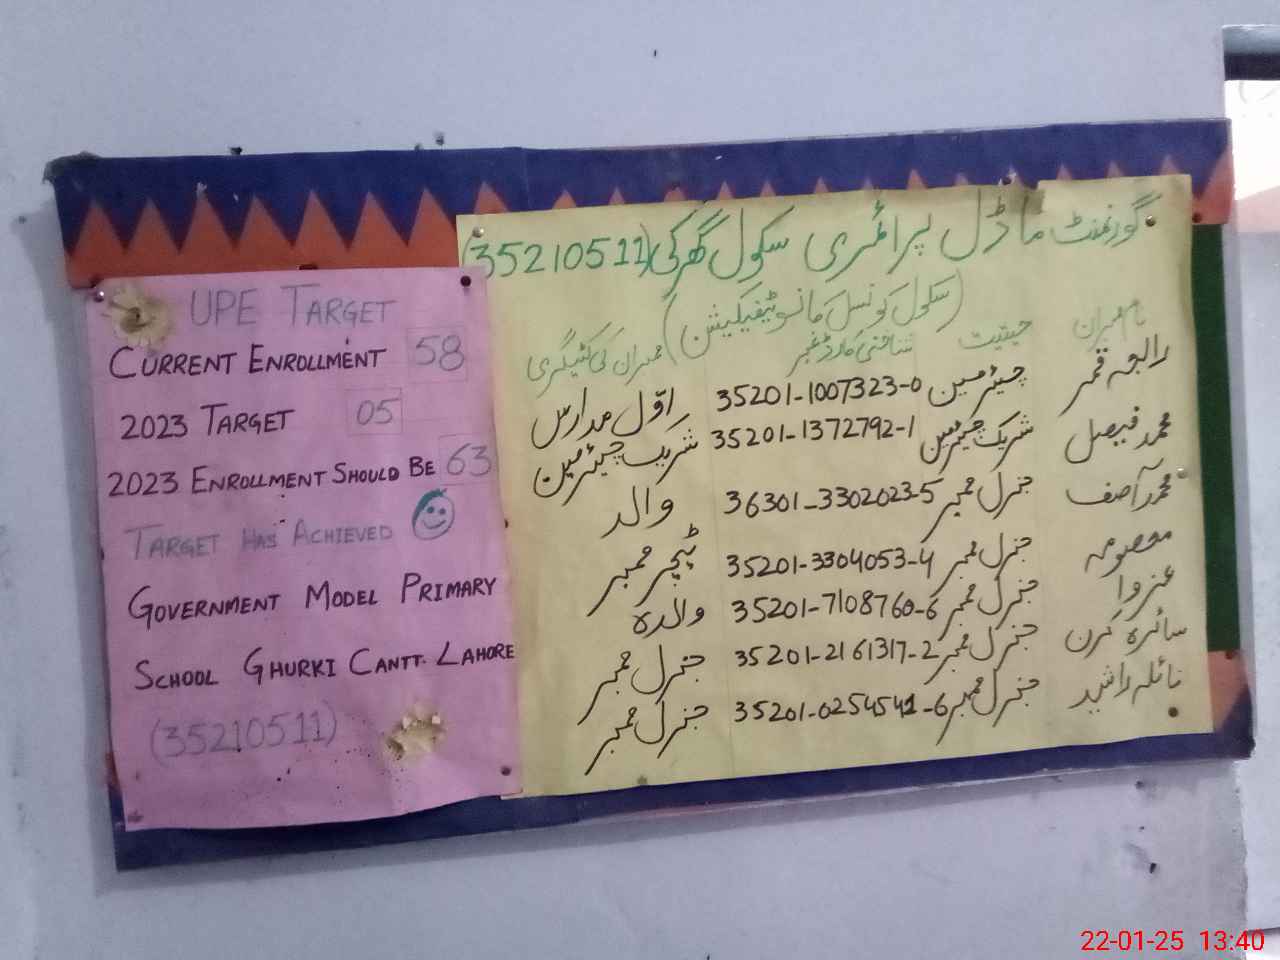 UPE TARGET
CURRENT ENROLLMENT 58
2023 TARGET 05
2023 ENROLLMENT SHOULD BE 63
TARGET HAS ACHIEVED
GOVERNMENT MODEL PRIMARY
SCHOOL GHURKI CANTT. LAHORE
(35210511)
گورنمنٹ ماڈل پرائمری سکول گھرکی (35210511)
(سکول کونسل کا نوٹیفیکیشن)
نام ممبران حیثیت شناختی کارڈ نمبر ممبران کی کٹیگری
رابعہ قمر چیئرمین 35201-1007323-0 اوّل مدارس
محمد فیصل شریک چیئرمین 35201-1372792-1 شریک چیئرمین
محمد آصف جنرل ممبر 36301-3302023-5 والد
معصومہ جنرل ممبر 35201-3304053-4 ٹیچر ممبر
عزوا جنرل ممبر 35201-7108760-6 والدہ
سائرہ کرن جنرل ممبر 35201-2161317-2 جنرل ممبر
نائلہ راشد جنرل ممبر 35201-0254541-6 جنرل ممبر
22-01-25 13:40